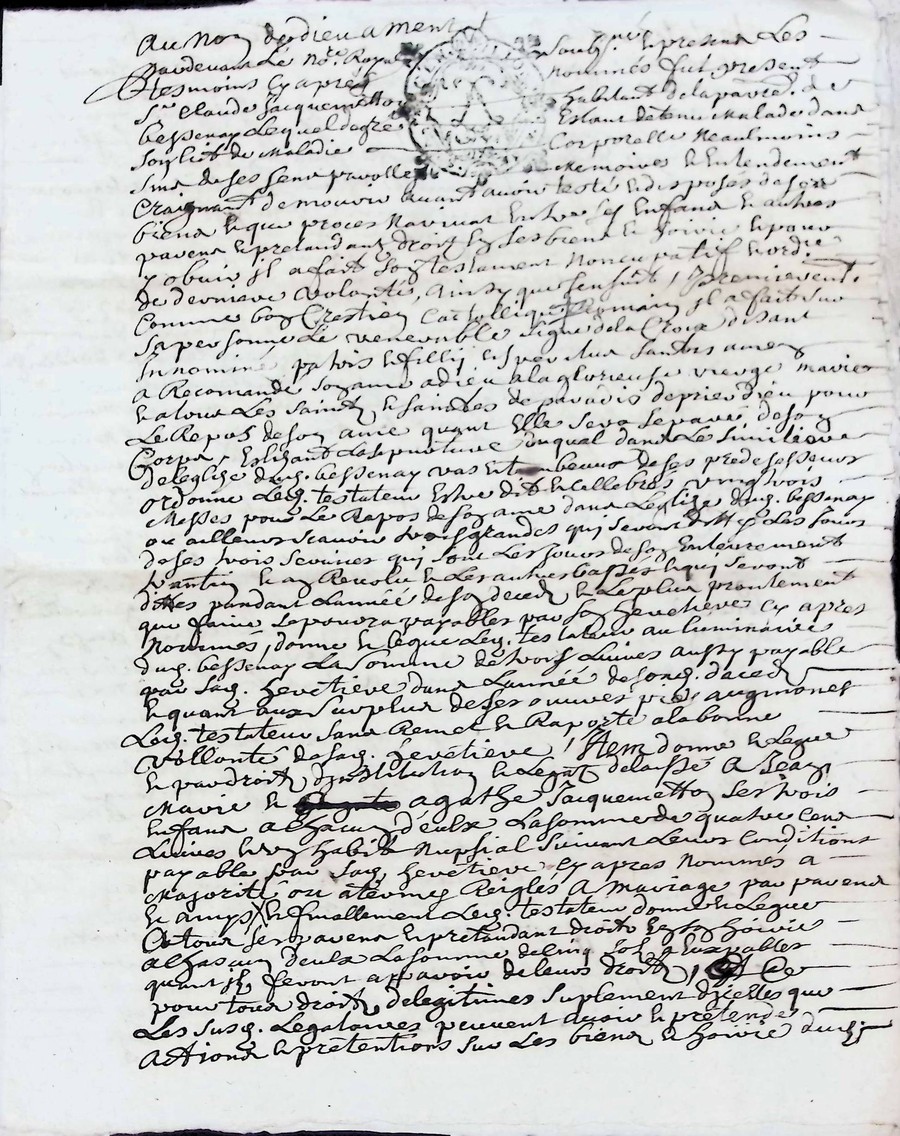 Au Nom de dieu amen
Pardevant Le No.re Royal Soub.né le presens Les
tesmoins Cy apres nommés fut present
S.r Claude Jacquemetton habitant de la parre. de
bessenay Lequel Estant detenu Malade dans
Son lit de Maladie Corporelle Neaulmoins
Sain de ses Sens parolle Memoires & Entendement
Craignant de mourir avant avoir testé & disposés de ses
biens & que proces Naisse Entre ses Enfans & autres
parens & pretandans droits En ses biens & hoirie & pour
y obvier Il a fait Son testament Noncupatif & ordre
de derniere volonté, Ainsy que sensuit, premierement.
Comme bon Crestien Catollique Romain Il a fait sur
Sa personne Le venerable Signe de la Croix disant
In nomine patris & fillij & speritus Santis amen
a Recomandé Son ame a dieu a la glorieuse vierge Marie
& a tous Les Saints & Saintes de paradis de prier dieu pour
Le Repos de Son ame quant Elle Sera Separée de Son
Corps, Eslizant La Sepulture duquel dans Le Simitiere
de leglise dud. bessenay Et tombeaux de ses predesesseurs
ordonne Led. testateur Estre dit & Cellebres vingt trois
Messes pour Le Repos de Son ame dans Leglise dud. bessenay
ou ailleurs scavoir trois grandes qui seront dittes Les Jours
de ses trois Services qui Sont Les Jours de Son Enterrement
quarantin & an Revolu & Les autres basses & qui seront
dittes pandant L'année de Son deces & Le plus prontement
que faire Le poura payables par Son heretiere Cy apres
Nommés, donne & legue Led. testateur au luminaire
dud. bessenay La Somme de trois Livres aussy payable
par Sad. heretiere dans L'année de Sond. deces
& quant aux Surplus de ses oeuvres pies aumones
Led. testateur Sans Remet & Raporte a la bonne
Vollonté de Sad. heretiere, Item donne & Legue
& par droit d'institution & Legat delaisse A Jean
Marie & agathe Jacquemetton Ses trois
Enfans a Chacun d'eulx La Somme de quatre Cens
Livres & un habit Nupsial Suivant Leurs Conditions
payable par Sad. heretiere Cy apres Nommés a
Majorité ou a termes Reiglés A Mariage par parens
& amys & finallement Led. testateur donne & Legue
A tous Ses parens & pretandant droits En son hoirie
a Chascun d'eulx La Somme de Cinq Sols payables
quant Ils feront aparoir de leurs droits, & Ce
pour tous droits de legitimes Suplement d'icelles que
Les Susd. Legataires peuvent avoir & pretendre
Actions & pretentions Sur Les biens & hoirie dud.